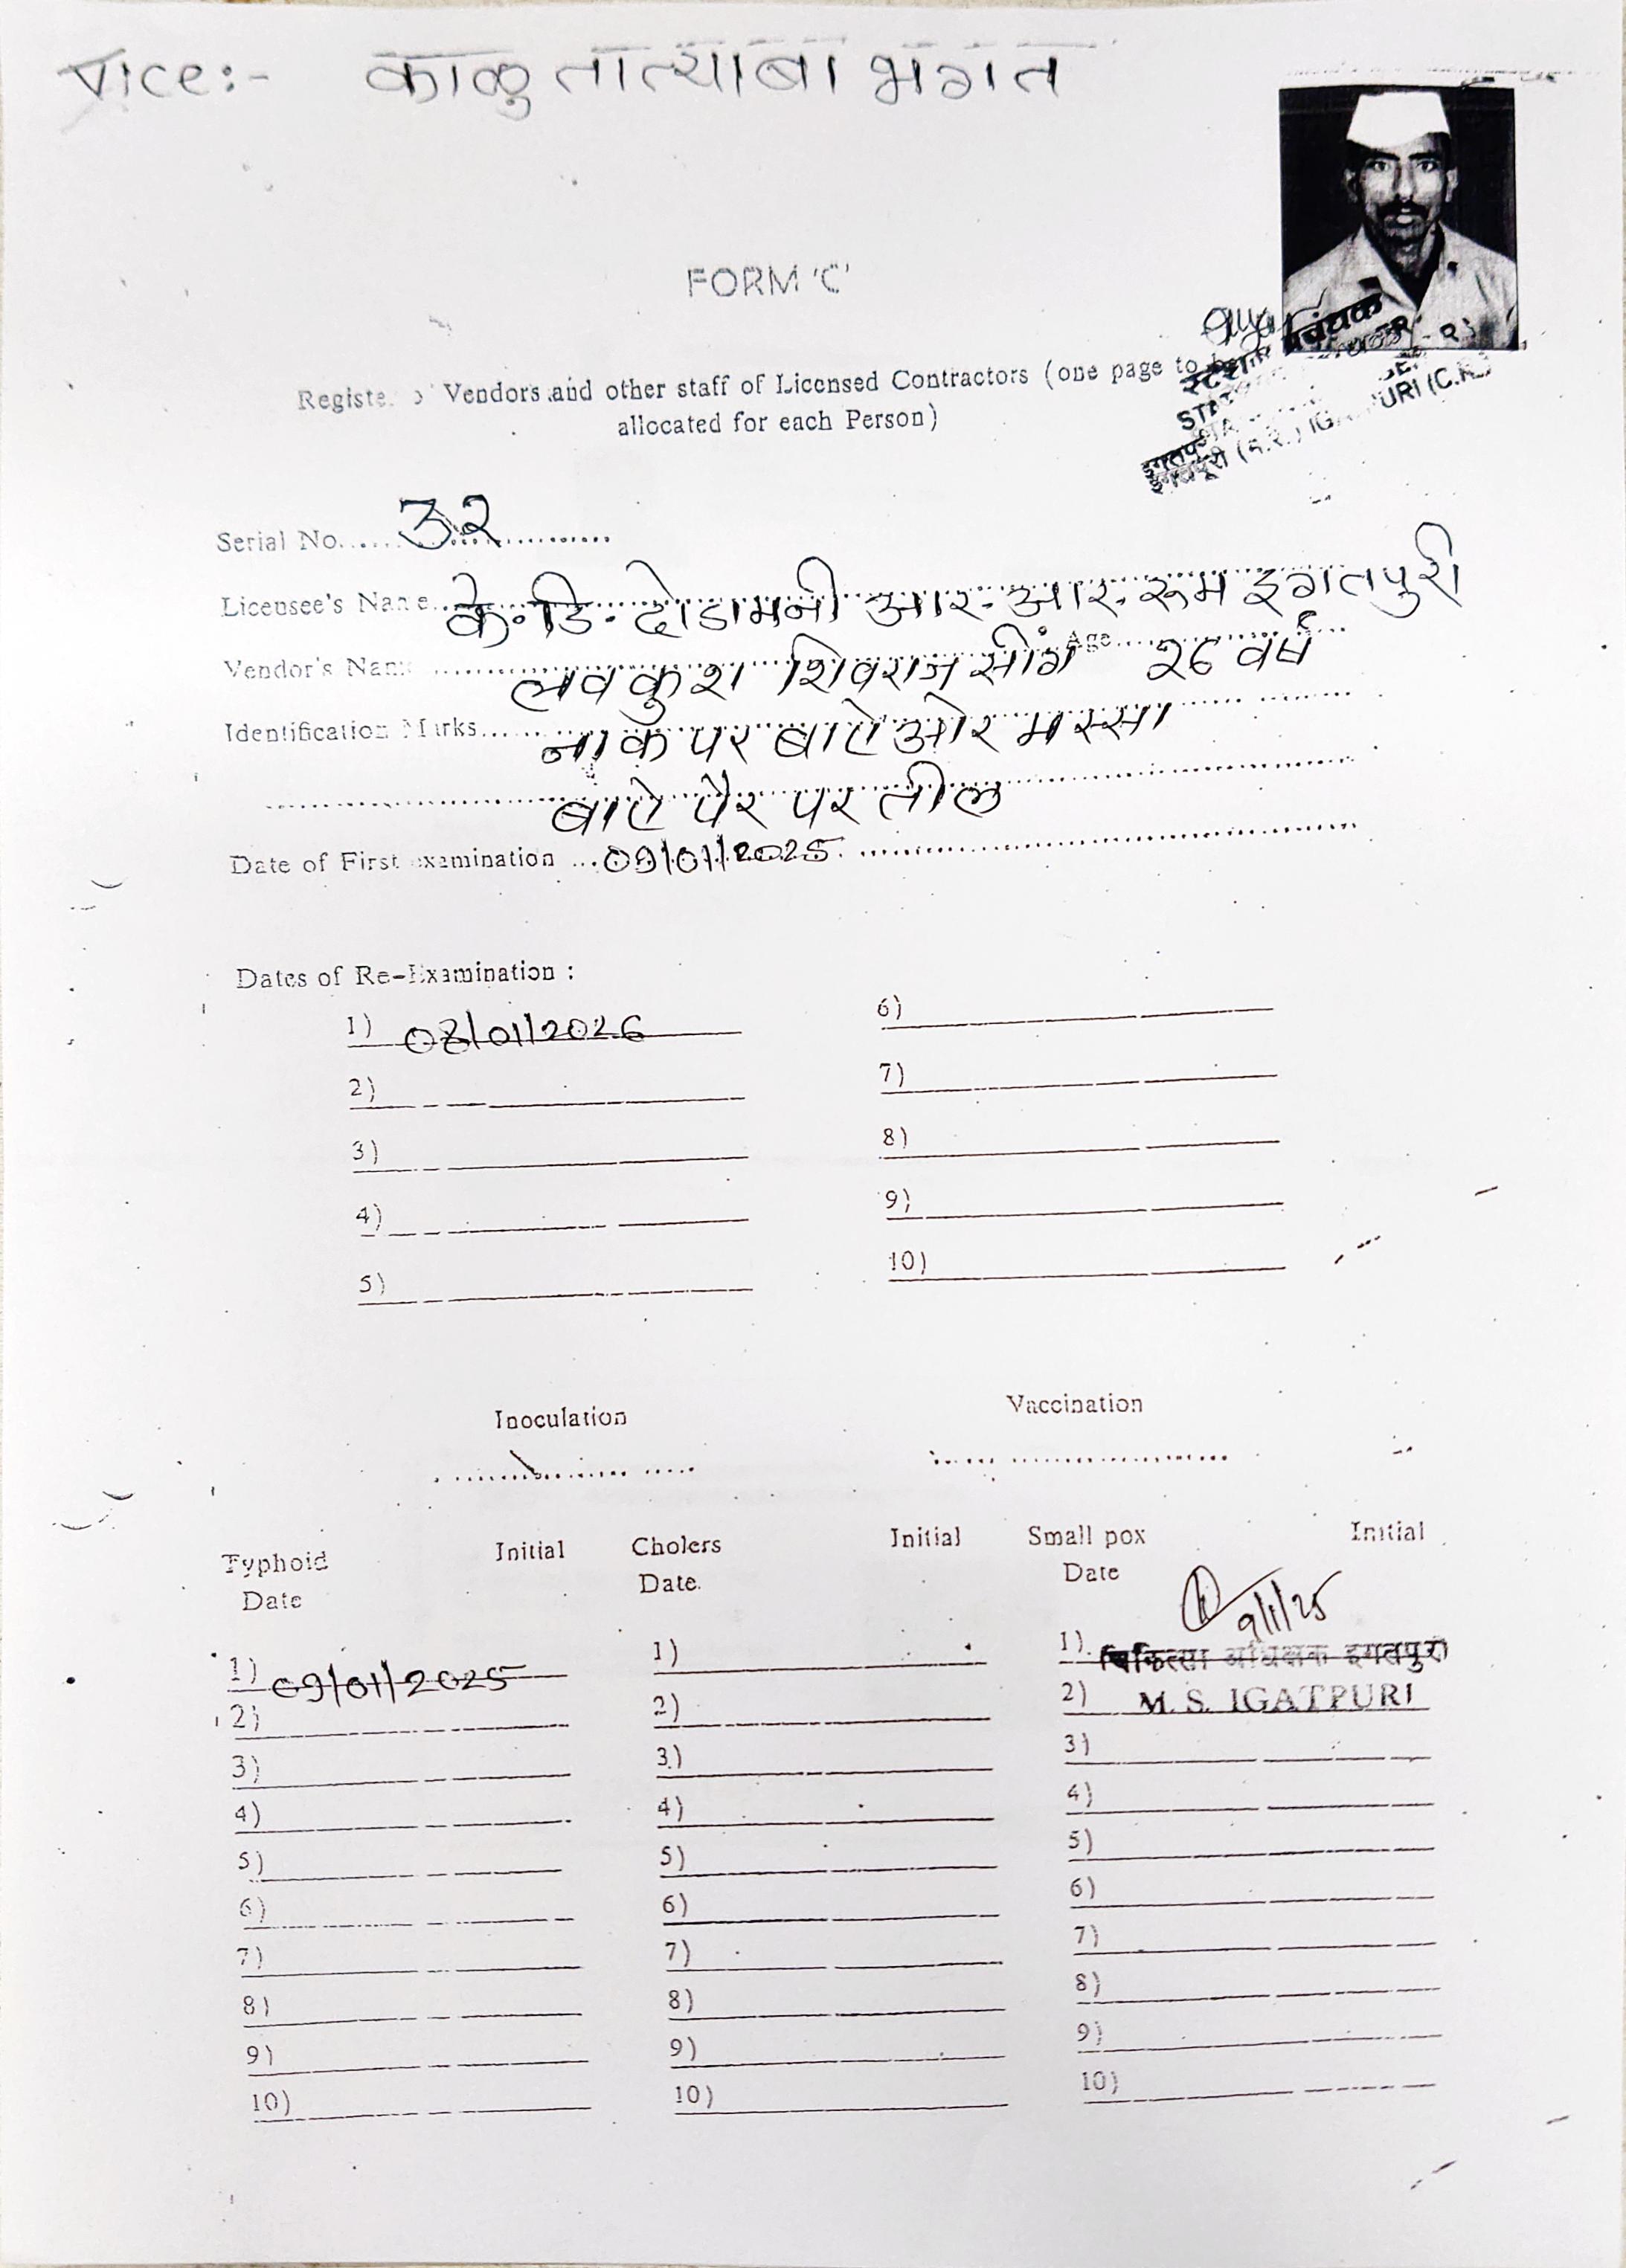 Vice:- काळु तात्याबा भगत
FORM 'C'
Register of Vendors and other staff of Licensed Contractors (one page to be
allocated for each Person)
Serial No. 32
Licensee's Name के. डि. दोडामनी आर. आर. रूम इगतपुरी
Vendor's Name लवकुश शिवराज सींग Age 26 वर्ष
Identification Marks नाक पर बाऐ ओर मस्सा
बाऐ पैर पर तील
Date of First examination 09/01/2025
Dates of Re-Examination :
1) 08/01/2026 6)
2) 7)
3) 8)
4) 9)
5) 10)
Inoculation Vaccination
Typhoid Initial Cholers Initial Small pox Initial
Date Date. Date
9/1/25
1) 09/01/2025 1) 1) चिकित्सा अधिक्षक इगतपुरी
2) 2) 2) M. S. IGATPURI
3) 3) 3)
4) 4) 4)
5) 5) 5)
6) 6) 6)
7) 7) 7)
8) 8) 8)
9) 9) 9)
10) 10) 10)